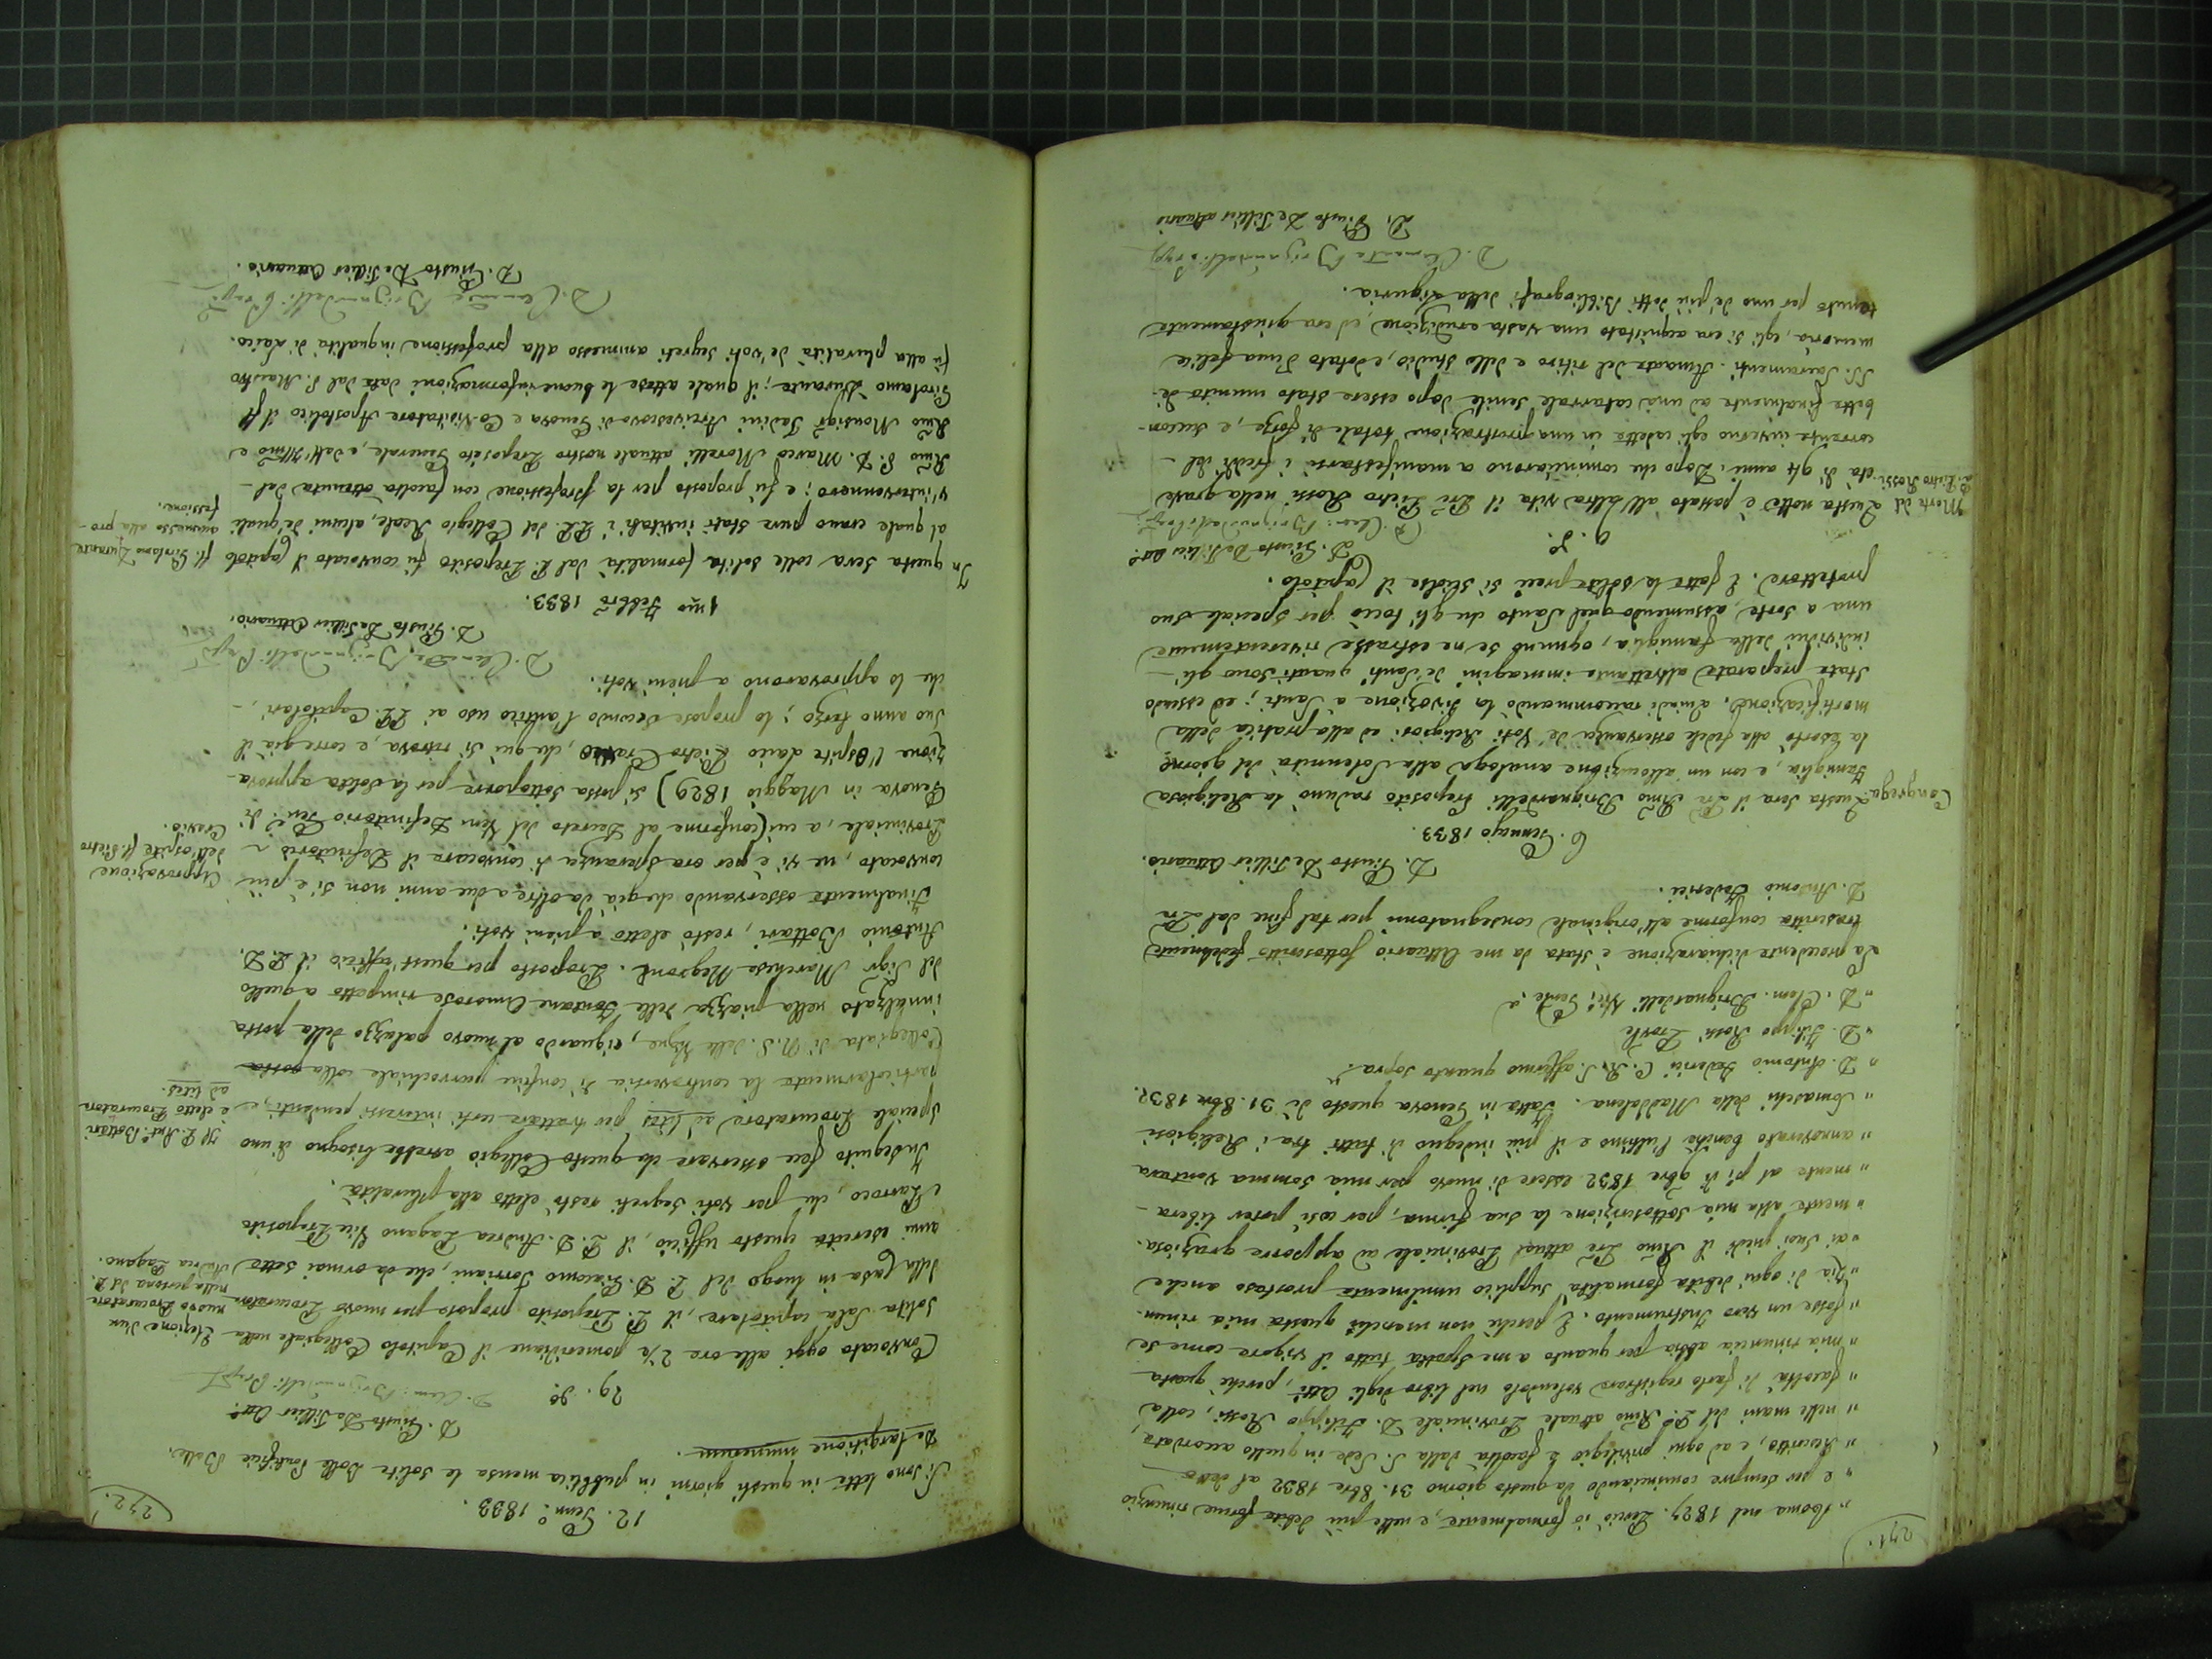 271.
„ Roma nel 1827. Perciò io formalmente, e nelle più debite forme rinunzio
„ e per sempre cominciando da questo giorno 31. 8bre 1832 al detto
„ Rescritto, e ad ogni privilegio e facoltà dalla S. Sede in quello accordata
„ nelle mani del P. Rmo attuale Provinciale D. Filippo Rossi, colla
„ facoltà di farlo registrare volendolo nel libro degli Atti, perchè questa
„ mia rinuncia abbia per quanto a me spetta tutto il vigore come se
„ fosse un vero Instrumento. E perchè non manchi questa mia rinun-
„ zia di ogni debita formalità supplico umilmente prostrato anche
„ ai suoi piedi il Rmo Pre attual Provinciale ad apporre graziosa-
„ mente alla mia sottoscrizione la sua firma, per così poter libera-
„ mente al pi di 9bre 1832 essere di nuovo per mia somma ventura
„ annoverato benchè l'ultimo e il più indegno di tutti tra i Religiosi
„ Somaschi della Maddalena. Fatta in Genova questo dì 31. 8bre 1832.
„ D. Antonio Federici C. R. S. affermo quanto sopra.
„ D. Filippo Rossi Prov̄le
„ D. Clem. Brignardelli Vic. Gen̄le.
La precedente dichiarazione è stata da me Attuario sottoscritto fedelmente
trascritta conforme all'originale consegnatomi per tal fine dal Pn̄
D. Antonio Federici.
D. Giusto De Tillier Attuario.
6. Gennajo 1833
Congrega. Questa sera il Pn̄ Rmo Brignardelli Preposito radunò la Religiosa
famiglia, e con un'allocuzione analoga alla Solennità del giorno
la esortò alla fedele osservanza de' Voti Religiosi ed alla pratica della
mortificazione. Quindi raccomandò la divozione a' Santi; ed essendo
state preparate altrettante immagini de' Santi quanti sono gli
individui della famiglia, ognuno se ne estrasse riverentemente
una a sorte, assumendo quel Santo che gli toccò per speciale suo
protettore. E fatte le solite preci si sciolse il Capitolo.
D. Giusto De Tillier Att.o
9. do.
D. Clem. Brignardelli Prep.
Morte del
P. Pietro Rossi.
Questa notte è passato all'altra vita il Pre Pietro Rossi nella grave
età di 94 anni. Dopo che cominciarono a manifestarsi i freddi del
corrente inverno egli cadette in una prostrazione totale di forze, e soccom-
bette finalmente ad una catarrale senile dopo essere stato munito de'
SS. Sacramenti. Amante del ritiro e dello studio, e dotato d'una felice
memoria, egli si era acquistato una vasta erudizione, ed era giustamente
tenuto per uno de' più dotti Bibliografi della Liguria.
D. Clemente Brignardelli Prep.
D. Giusto De Tillier attuario
272.
12. Genn.o 1833.
Si sono lette in questi giorni in pubblica mensa le solite Bolle Pontificie
De largitione munerum.
D. Giusto De Tillier Att.o
29. do
D. Clem. Brignardelli Prep.
Elezione d'un
nuovo Procuratore
nella persona del P.
Andrea Pagano.
Convocato oggi alle ore 2 1/2 pomeridiane il Capitolo Collegiale nella
solita Sala capitolare, il P. Preposito propose per nuovo Procuratore
della Casa in luogo del P. D. Giacomo Torriani, che da ormai sette
anni esercita questo uffizio, il P. D. Andrea Pagano Vice Preposito
Parroco, che per voti segreti restò eletto alla pluralità.
Il P. Ant.o Bottari
è eletto Procuratore
ad lites.
In seguito fece osservare che questo Collegio avrebbe bisogno di uno
speciale Procuratore ad lites per trattare certi interessi pendenti, e
particolarmente la controversia di confine parrocchiale colla
Collegiata di N. S. delle Vigne, riguardo al nuovo palazzo della posta
innalzato nella piazza delle Fontane Amorose rimpetto a quello
del Sigr Marchese Negrone. Proposto per quest'uffizio il P. D.
Antonio Bottari, restò eletto a pieni voti.
Approvazione
dell'ospite fr. Pietro
Crevio.
Finalmente osservando che già da oltre a due anni non si è più
convocato, ne vi è per ora speranza si convocara il Definitorio
Provinciale, a cui (conforme al Decreto del Ven. Definitorio Gen. di
Genova in Maggio 1829) si possa sottoporre per la solita approva-
zione l'Ospite laico Pietro, che qui si ritrova, e corre già il
suo anno terzo; lo propose secondo l'antico uso ai PP. Capitolari,
che lo approvarono a pieni voti.
D. Clemente Brignardelli Prep.
D. Giusto De Tillier Attuario.
1mo Febbr̄o 1833.
fr. Girolamo Durante
ammesso alla pro-
fessione.
In questa sera colle solite formalità dal P. Preposito fu convocato il Capitolo
al quale erano pure stati invitati i PP. del Collegio Reale, alcuni de' quali
v'intervennero; e fu proposto per la professione con facoltà ottenuta dal
Rmo P. D. Marco Morelli attuale nostro Preposito Generale, e dell'Illmo e
Rmo Monsigr Tadini Arcivescovo di Genova e Co-visitatore Apostolico il fr.
Girolamo Durante; il quale attese le buone informazioni date dal P. Maestro
fu alla pluralità de' voti segreti ammesso alla professione in qualità di Laico.
D. Clemente Brignardelli Prep.
D. Giusto De Tillier Attuario.